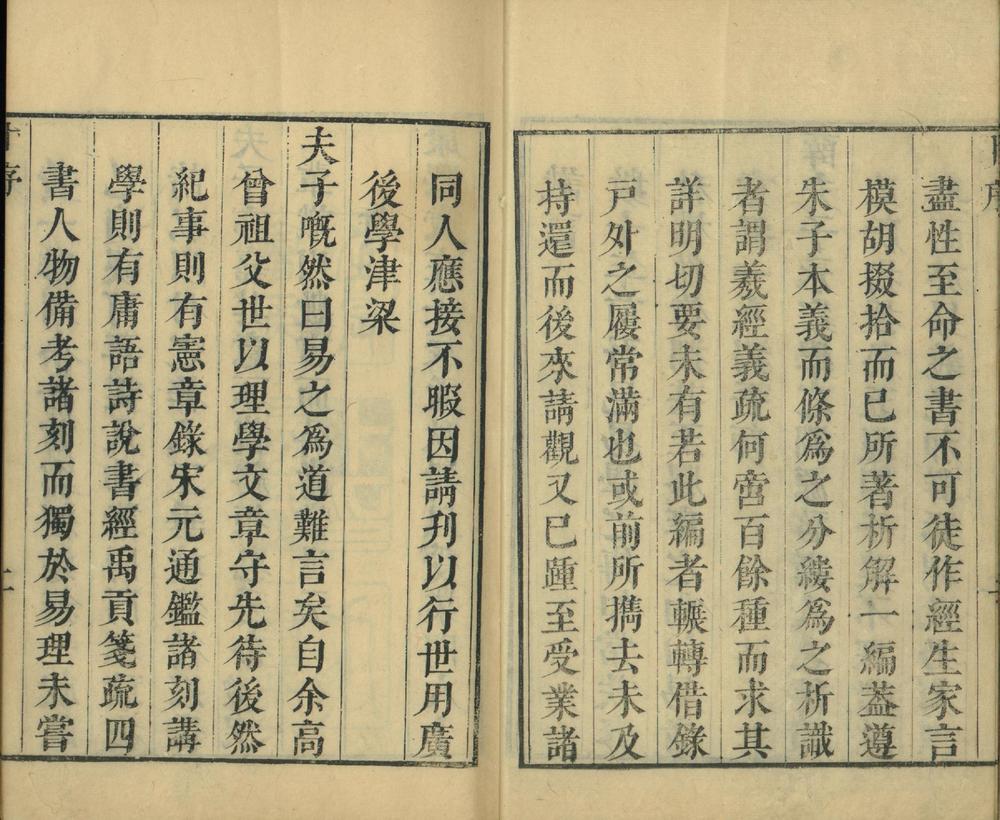 盡性至命之書不可徒作經生家言
模胡掇拾而已所著析解一編葢遵
朱子本義而條爲之分縷爲之析識
者謂羲經義疏何啻百餘種而求其
詳明切要未有若此編者輾轉借錄
戸外之屨常滿也或前所攜去未及
持還而後來請觀又已踵至受業諸
同人應接不暇因請刊以行世用廣
後學津梁
夫子嘅然曰易之爲道難言矣自余高
曾祖父世以理學文章守先待後然
紀事則有憲章錄宋元通鑑諸刻講
學則有庸語詩說書經禹貢箋疏四
書人物備考諸刻而獨於易理未嘗
序